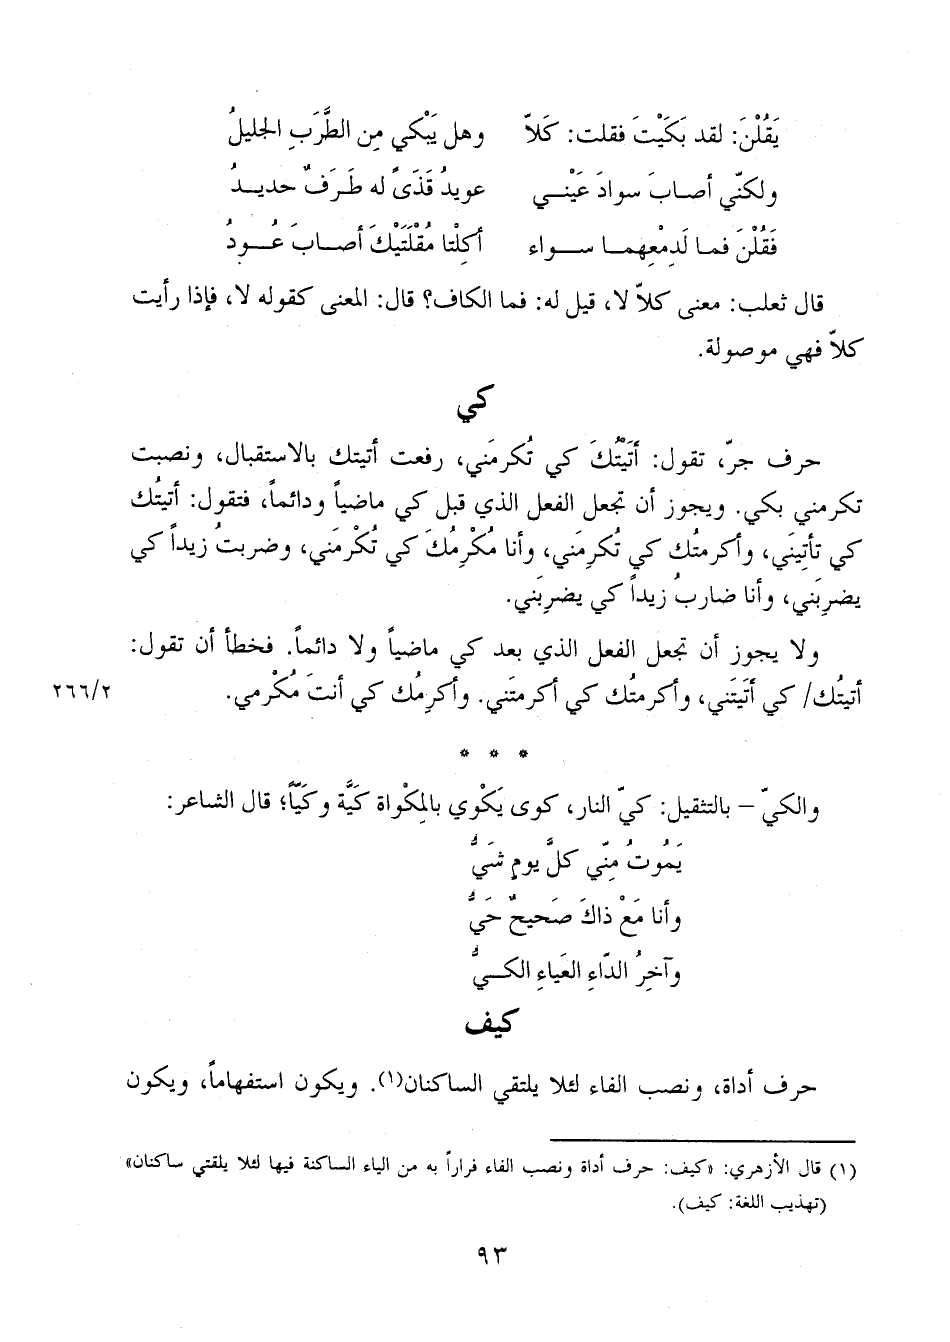 يَقُلْنَ: لقد بَكَيْتَ فقلت: كَلاّ وهل يَبْكي مِن الطَّرَبِ الجليلُ
ولكنّي أصابَ سوادَ عَيْنـي عويدُ قَذَىً له طَرَفٌ حديـدُ
فَقُلْنَ فمـا لَدمْعِهمـا سـواء أكِلْتا مُقْلَتَيْكَ أصـابَ عُـودُ
قال ثعلب: معنى كلاّ لا، قيل له: فما الكاف؟ قال: المعنى كقوله لا، فإذا رأيت
كلاّ فهي موصولة.
كي
حرف جرّ، تقول: أتَيْتُكَ كي تُكرمَني، رفعت أتيتك بالاستقبال، ونصبت
تكرمني بكي. ويجوز أن تجعل الفعل الذي قبل كي ماضياً ودائماً، فتقول: أتيتُك
كي تأتيَني، وأكرمتُك كي تُكرِمَني، وأنا مُكْرِمُكَ كي تُكْرِمَني، وضربتُ زيداً كي
يضربَني، وأنا ضاربُ زيداً كي يضربَني.
ولا يجوز أن تجعل الفعل الذي بعد كي ماضياً ولا دائماً. فخطأ أن تقول:
أتيتُك/ كي أتَيتَني، وأكرمتُك كي أكرمتَني. وأكرِمُك كي أنتَ مُكْرمي. ٢٦٦/٢
* * *
والكيّ – بالتثقيل: كيّ النار، كوى يَكْوي بالمِكْواة كَيَّة وكَيّاً؛ قال الشاعر:
يَمُوتُ مِنّي كلَّ يومٍ شَيُّ
وأنا مَعْ ذاكَ صَحيحٌ حَيُّ
وآخِرُ الدّاءِ العَياءِ الكـيُّ
كيف
حرف أداة، ونصب الفاء لئلا يلتقي الساكنان(١). ويكون استفهاماً، ويكون
(١) قال الأزهري: «كيف: حرف أداة ونصب الفاء فراراً به من الياء الساكنة فيها لئلا يلقتي ساكنان»
(تهذيب اللغة: كيف).
٩٣